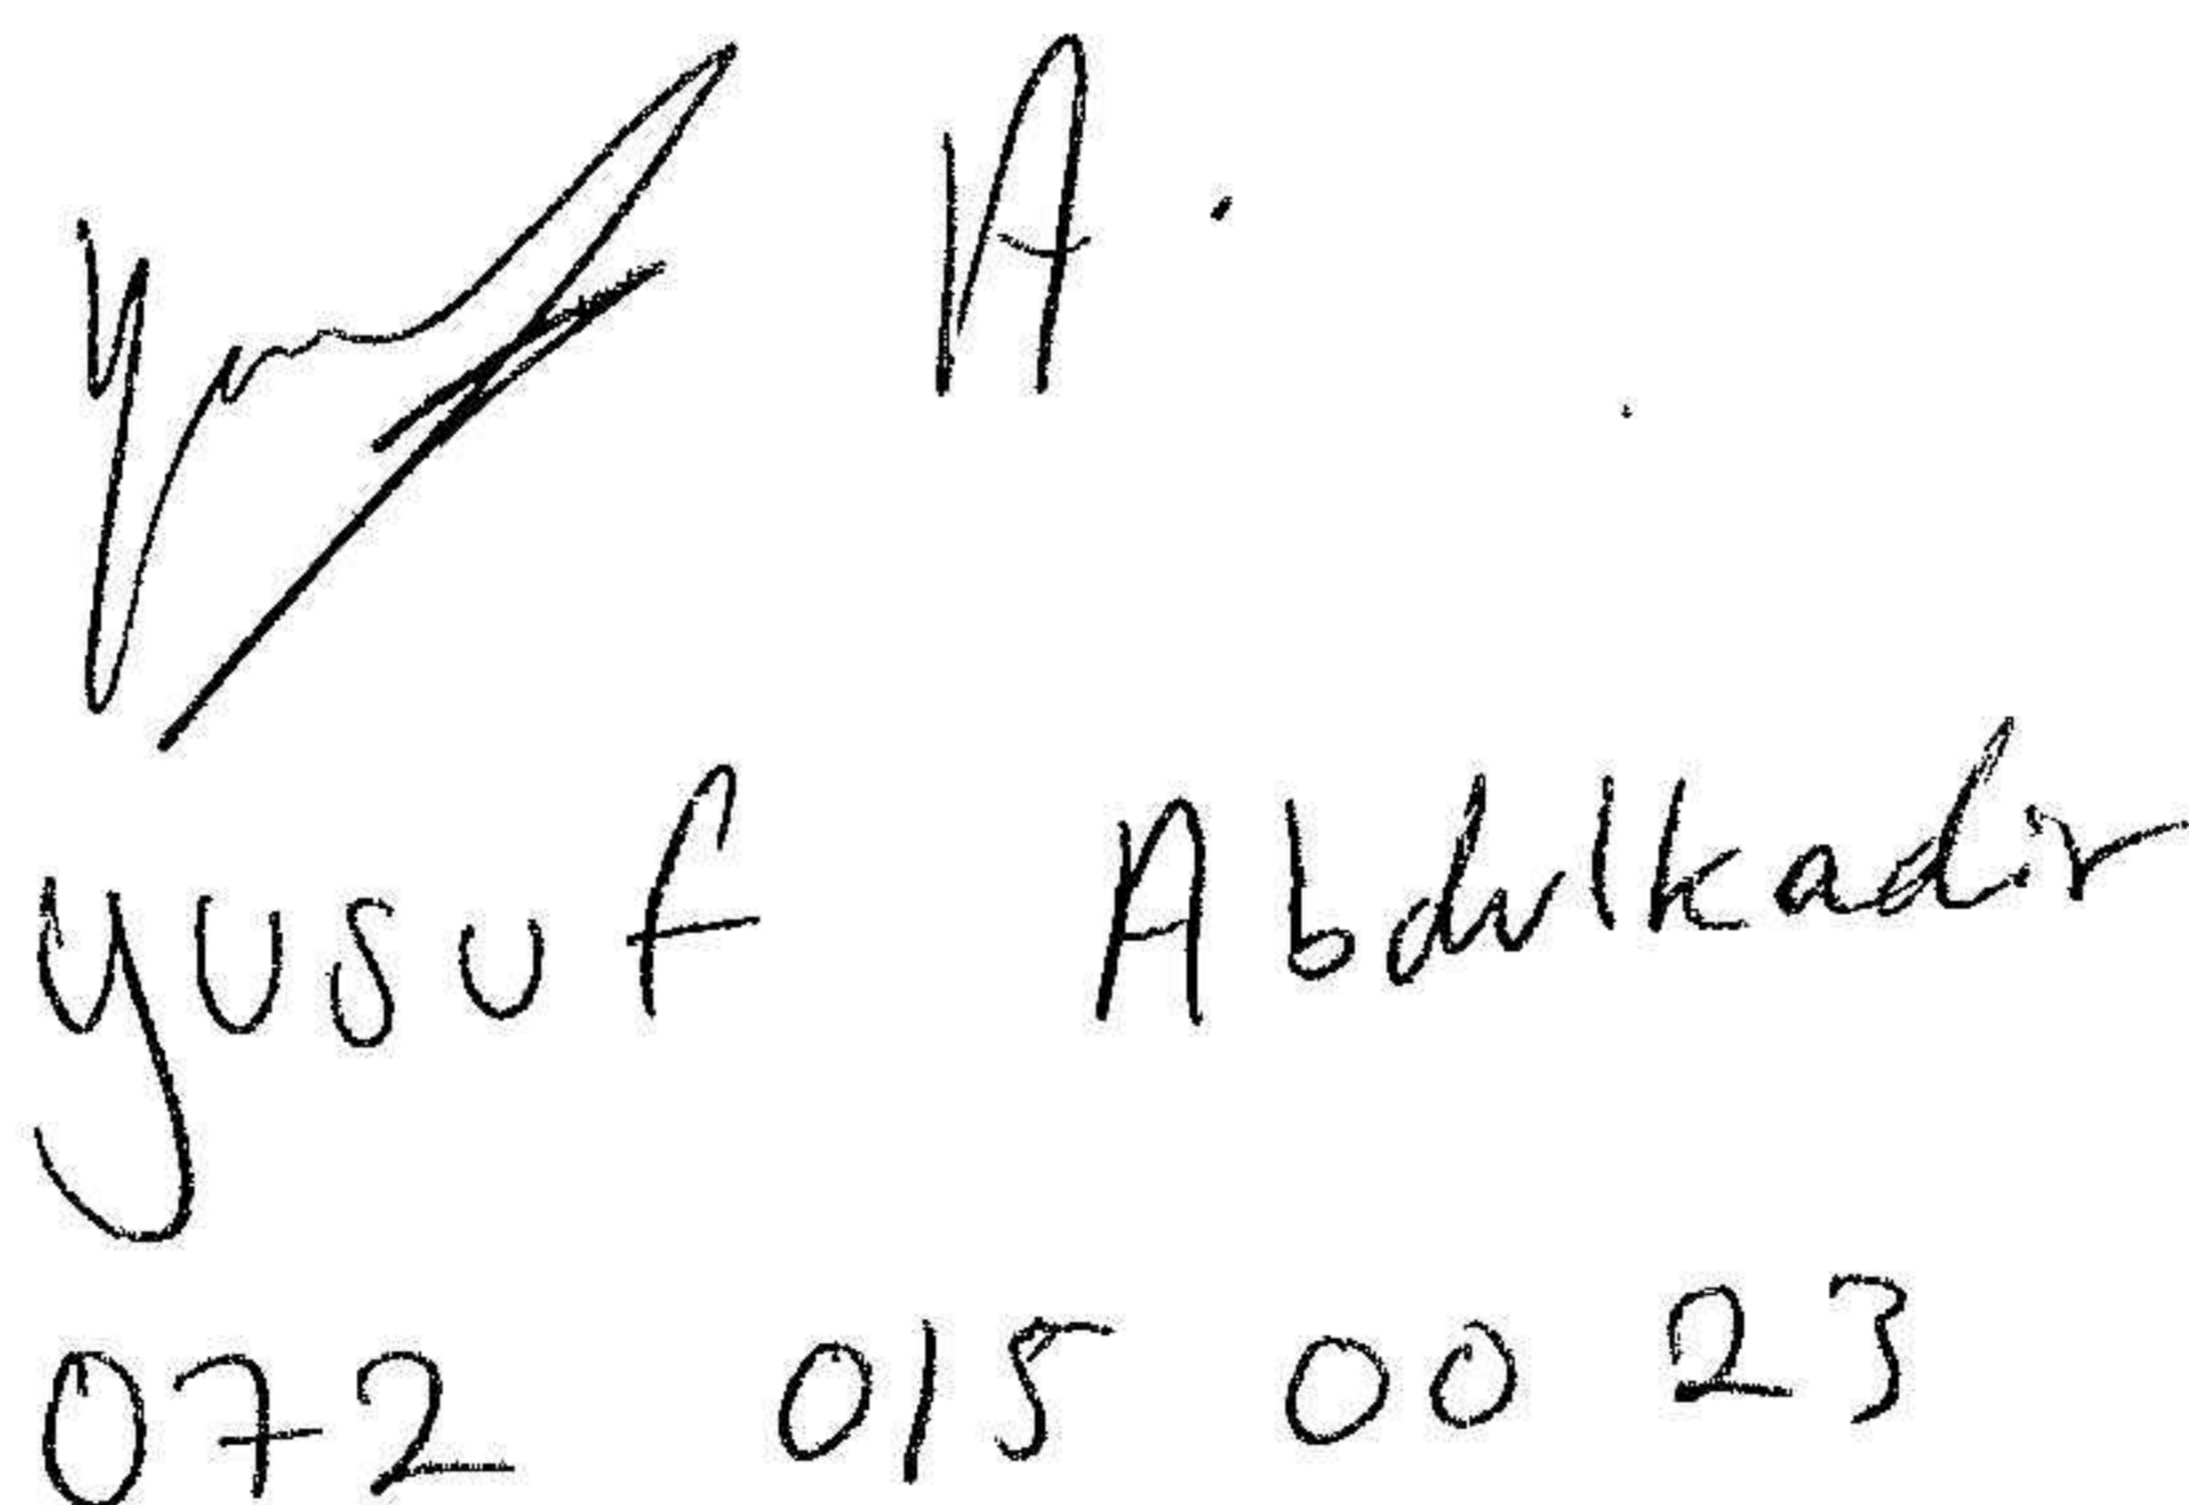 A.
yusuf Abdulkadir
072 015 00 23